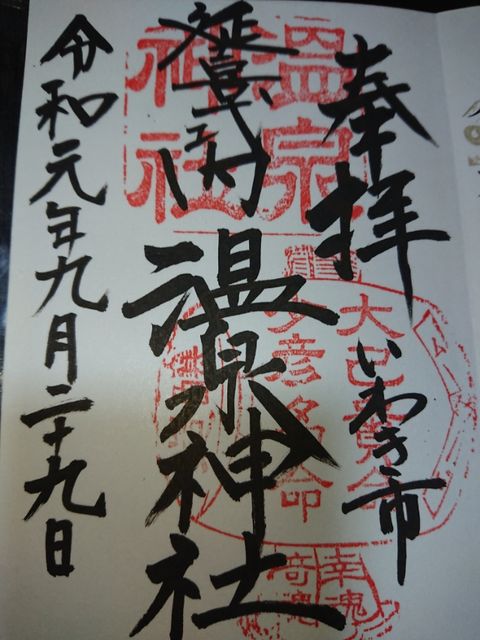 奉拝
いわき市
延喜式内
温泉神社
令和元年九月二十九日
温泉
神社
大己貴命
少彦名命
幸魂
奇魂